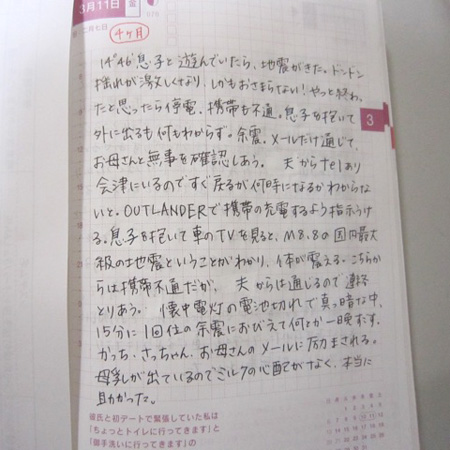 3月11日 金
4ヶ月
14°46′息子と遊んでいたら、地震がきた。ドンドン
揺れが激しくなり、しかもおさまらない！やっと終わっ
たと思ったら停電、携帯も不通。息子を抱いて
外に出るも何もわからず。余震。メールだけ通じて、
お母さんと無事を確認しあう。 夫からtelあり
会津にいるのですぐ戻るが何時になるかわからな
いと。OUTLANDERで携帯の充電するよう指示うけ
る。息子を抱いて車のTVを見ると、M8.8の国内最大
級の地震ということがわかり、体が震える。こちらか
らは携帯不通だが、 夫からは通じるので連絡
とりあう。 懐中電灯の電池切れで真っ暗な中、
15分に1回位の余震におびえて何とか一晩すごす。
かっち、さっちゃん、お母さんのメールに励まされる。
母乳が出ているのでミルクの心配がなく、本当に
助かった。
3
彼氏と初デートで緊張していた私は
「ちょっとトイレに行ってきます」と
「御手洗いに行ってきます」の